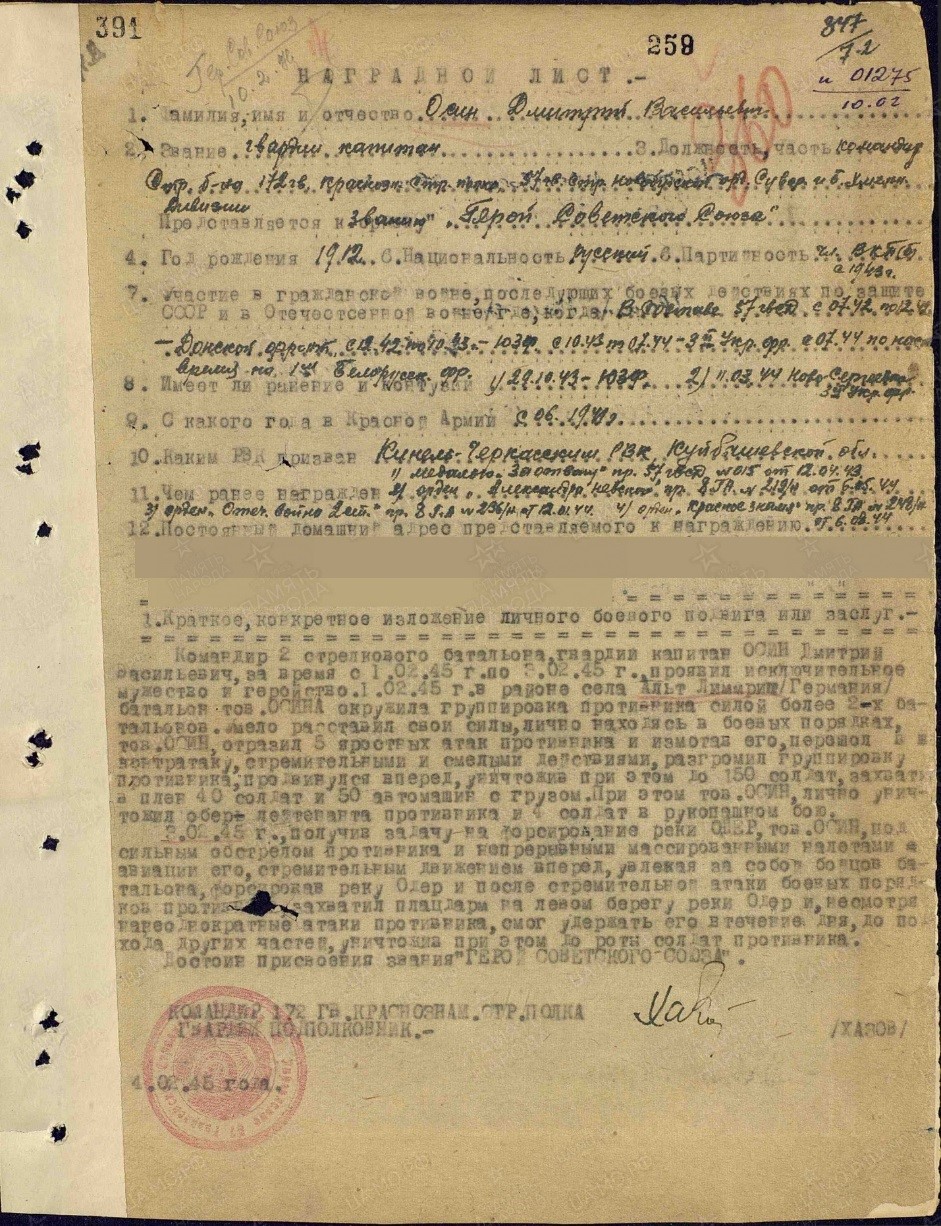 391
259
847
9.2
и 01275
10.02
Гер. Сов. Союз
360
НАГРАДНОЙ ЛИСТ.-
1. Фамилия, имя и отчество. Осин Дмитрий Васильевич
2. Звание гвардии капитан 3. Должность, часть командир
Стр. б-на 172 гв. краснозн. стр. полка 57 гв. стр. орд. Сувор. и Б. Хмельн.
дивизии
Представляется к званию "Герой Советского Союза"
4. Год рождения 1912. 5. Национальность русский. 6. Партийность чл. ВКП(б)
с 1943 г.
7. Участие в гражданской войне, последующих боевых действиях по защите
СССР и в Отечественной войне/где, когда/ В составе 57 гвсд с 07.42 по 12.42
- Донской фронт, с 12.42 по 10.43 - ЮЗФ с 10.43 по 07.44 - 3й Укр. фр. с 07.44 по наст.
время на 1м Белорусск. фр.
8. Имеет ли ранение и контузии 1) 29.10.43 - ЮЗФ. 2) 11.03.44 Ново-Сергеевка
3й Укр. фр.
9. С какого года в Красной Армии с 06.1941 г.
10. Каким РВК призван Кинель-Черкасским РВК Куйбышевской обл.
1) медалью "За отвагу" пр. 57 гвсд № 015 от 12.04.43
11. Чем ранее награжден 2) орден "Александра Невского" пр. 8 ГА №
3) орден "Отеч. войны 2 ст." пр. 8 ГА № 236/н от 12.01.44 4) орд. "Красное знамя" пр. 8 ГА № 248/н
12. Постоянный домашний адрес представляемого к награждению. от 6.08.44
1. Краткое, конкретное изложение личного боевого подвига или заслуг.-
Командир 2 стрелкового батальона, гвардии капитан ОСИН Дмитрий
Васильевич, за время с 1.02.45 г. по 3.02.45 г., проявил исключительное
мужество и геройство. 1.02.45 г. в районе села Альт Лиммриц/Германия/
батальон тов. ОСИНА окружила группировка противника силой более 2-х ба-
тальонов. Умело расставил свои силы, лично находясь в боевых порядках,
тов. ОСИН, отразил 5 яростных атак противника и измотав его, перешел в
контратаку, стремительными и смелыми действиями, разгромил группировку
противника, продвинулся вперед, уничтожив при этом до 150 солдат, захвати
в плен 40 солдат и 50 автомашин с грузом. При этом тов. ОСИН, лично унич-
тожил обер лейтенанта противника и 4 солдат в рукопашном бою.
3.02.45 г., получив задачу на форсирование реки ОДЕР, тов. ОСИН, под
сильным обстрелом противника и непрерывными массированными налетами
авиации его, стремительным движением вперед, увлекая за собой бойцов ба-
тальона, форсировав реку Одер и после стремительной атаки боевых поряд-
ков против захватил плацдарм на левом берегу реки Одер и, несмотря
нанеоднократные атаки противника, смог удержать его втечение дня, до по
хода других частей, уничтожив при этом до роты солдат противника.
Достоин присвоения звания "ГЕРОЙ СОВЕТСКОГО СОЮЗА".
КОМАНДИР 172 ГВ. КРАСНОЗНАМ. СТР. ПОЛКА
ГВАРДИИ ПОДПОЛКОВНИК.-
/ХАЗОВ/
4.02.45 года.